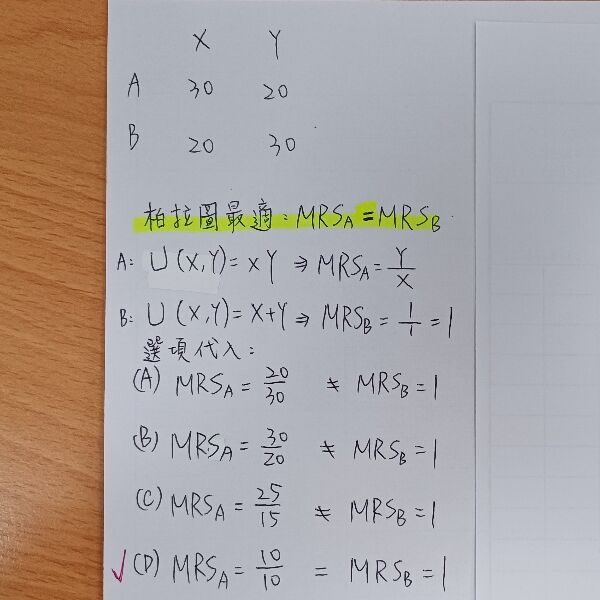 X Y
A 30 20
B 20 30
柏拉圖最適：MRS_A = MRS_B
A: U(X,Y)=XY ⇒ MRS_A = Y/X
B: U(X,Y)=X+Y ⇒ MRS_B = 1/1 = 1
選項代入：
(A) MRS_A = 20/30 ≠ MRS_B = 1
(B) MRS_A = 30/20 ≠ MRS_B = 1
(C) MRS_A = 25/15 ≠ MRS_B = 1
✓ (D) MRS_A = 10/10 = MRS_B = 1